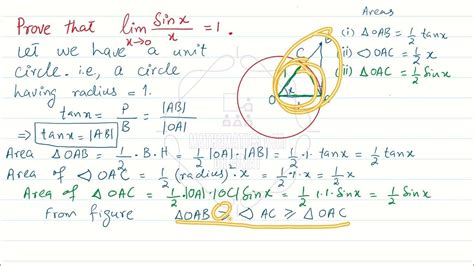 Prove that lim x→0 Sinx/x = 1.
Let we have a unit
circle. i.e, a circle
having radius = 1.
tanx = P/B = |AB|/|OA|
⇒ tanx = |AB|
Areas
(i) △OAB = 1/2 tanx
(ii) ◁OAC = 1/2 x
(iii) △OAC = 1/2 Sinx
B
C
O
x
1
Area △OAB = 1/2 . B.H = 1/2 |OA|.|AB| = 1/2 . 1. tanx = 1/2 tanx
Area of ◁OAC = 1/2 (radius)². x = 1/2 . 1 . x = 1/2 x
Area of △OAC = 1/2 . |OA|.|OC| Sinx = 1/2 . 1.1. Sinx = 1/2 Sinx
From figure △OAB ≥ ◁ AC ≥ △OAC